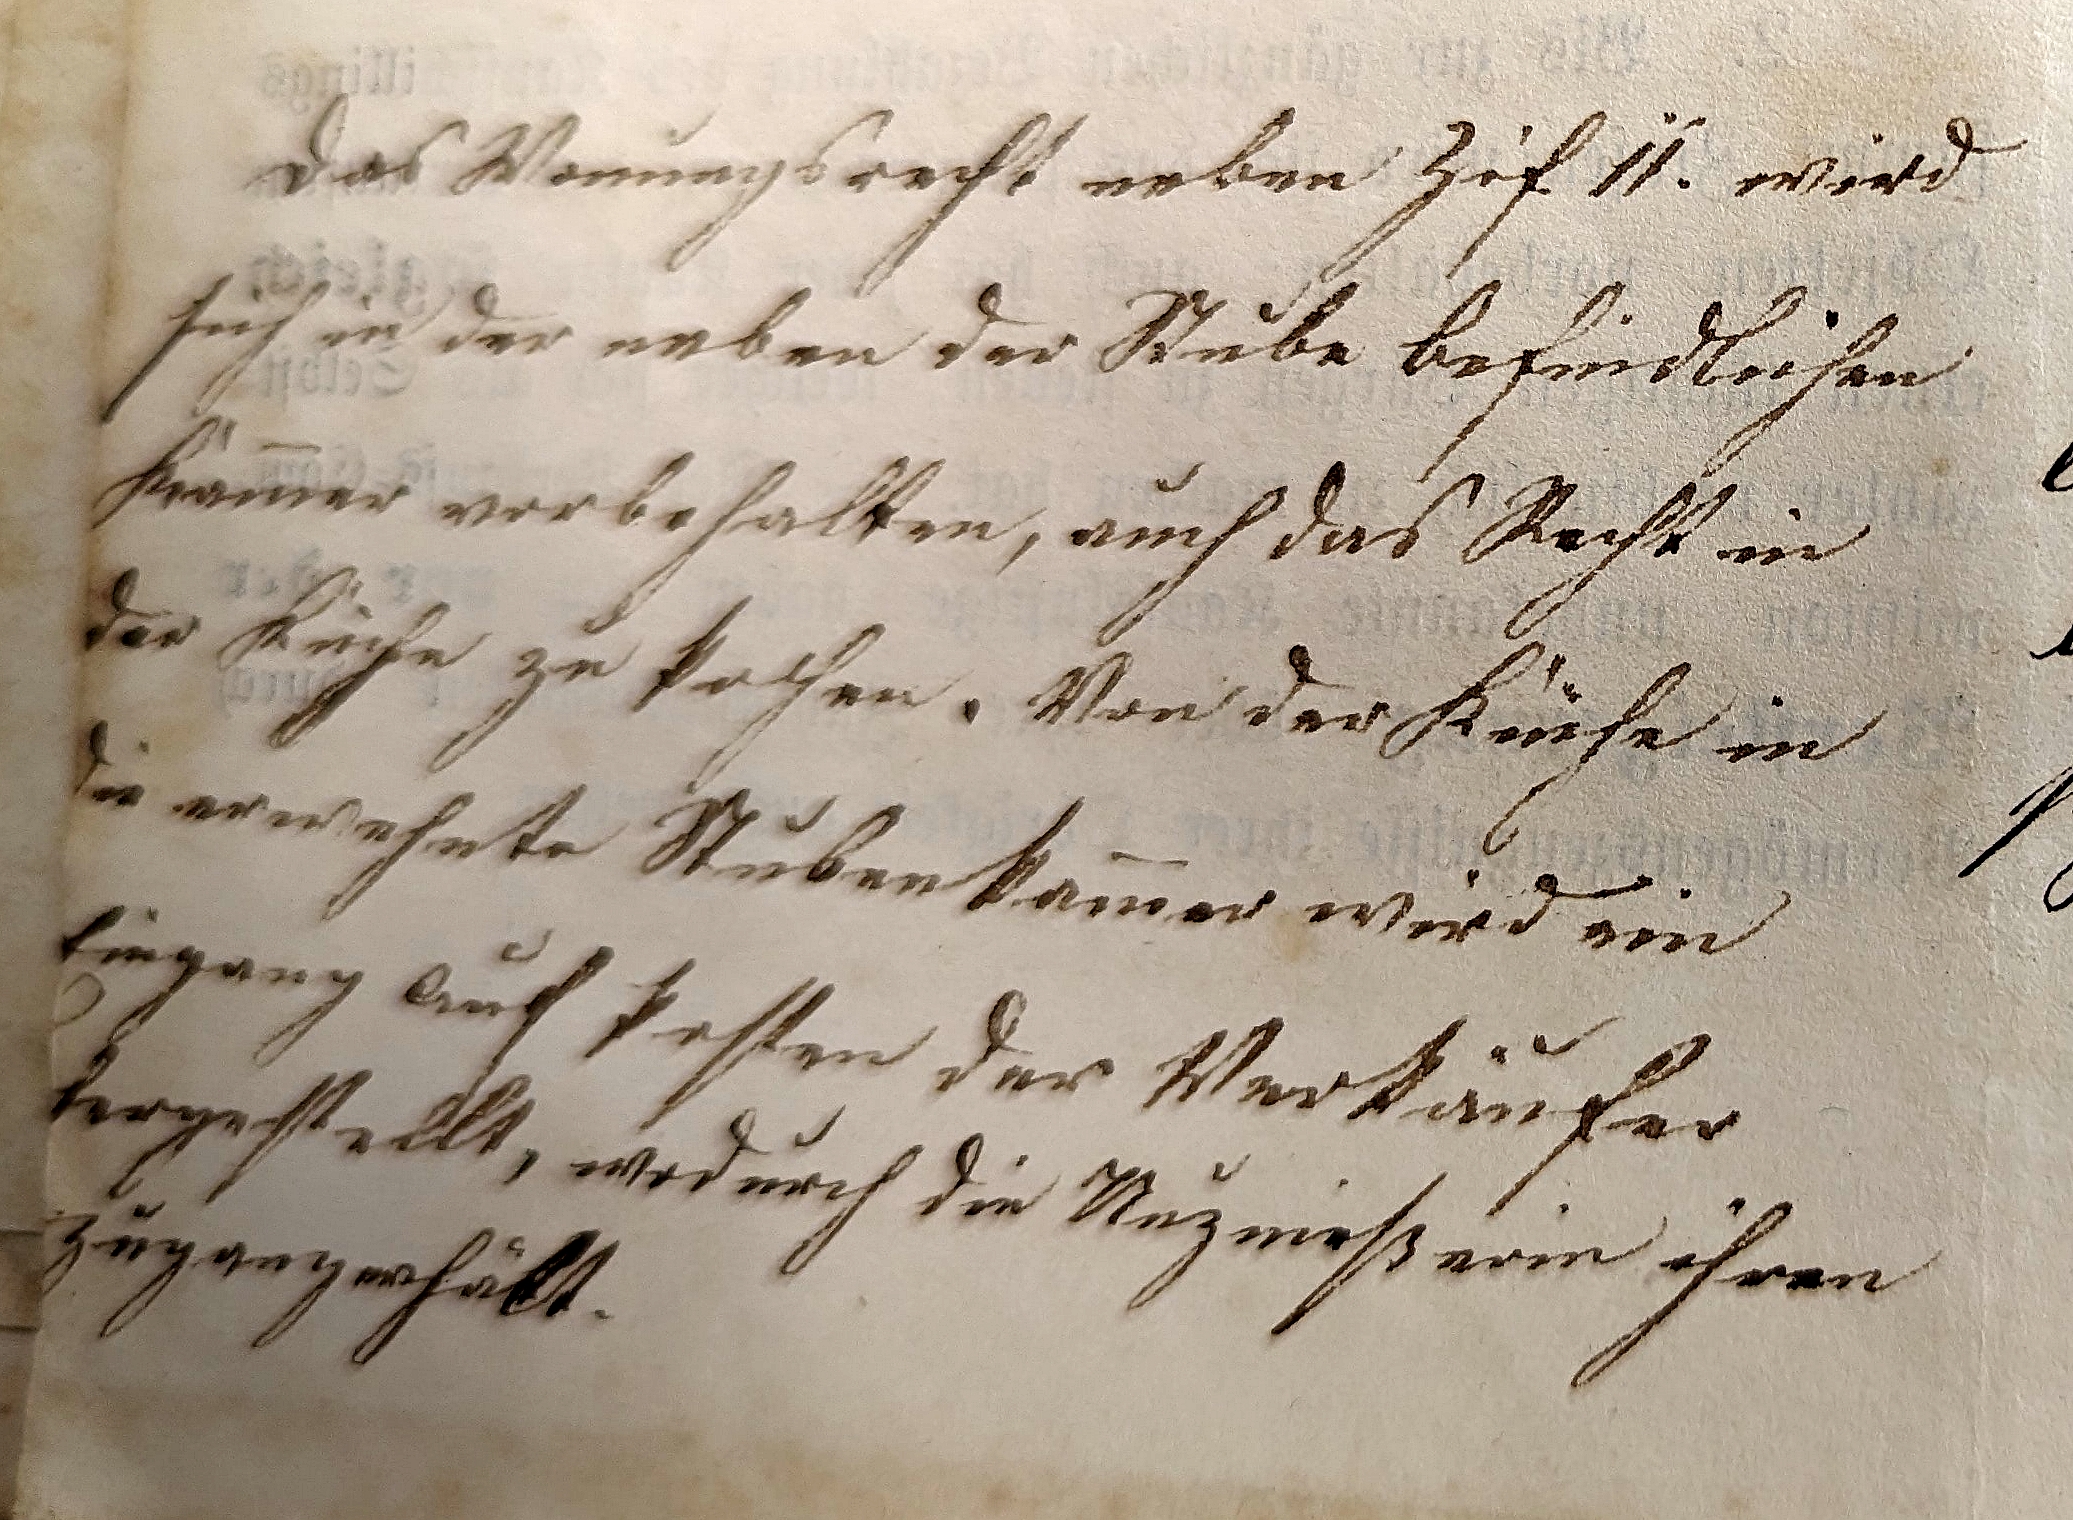 Das Wonungsrecht neben Zif 11. wird
sich in der neben der Stube befindlichen
Kam̄er vorbehalten, auch das Recht in
der Küche zu kochen. Von der Küche in
die erwehnte Stubenkam̄er wird ein
Eingang auf kosten der Verkäufer
hergestellt, wodurch die Nuznießerin ihren
zugang erhält.